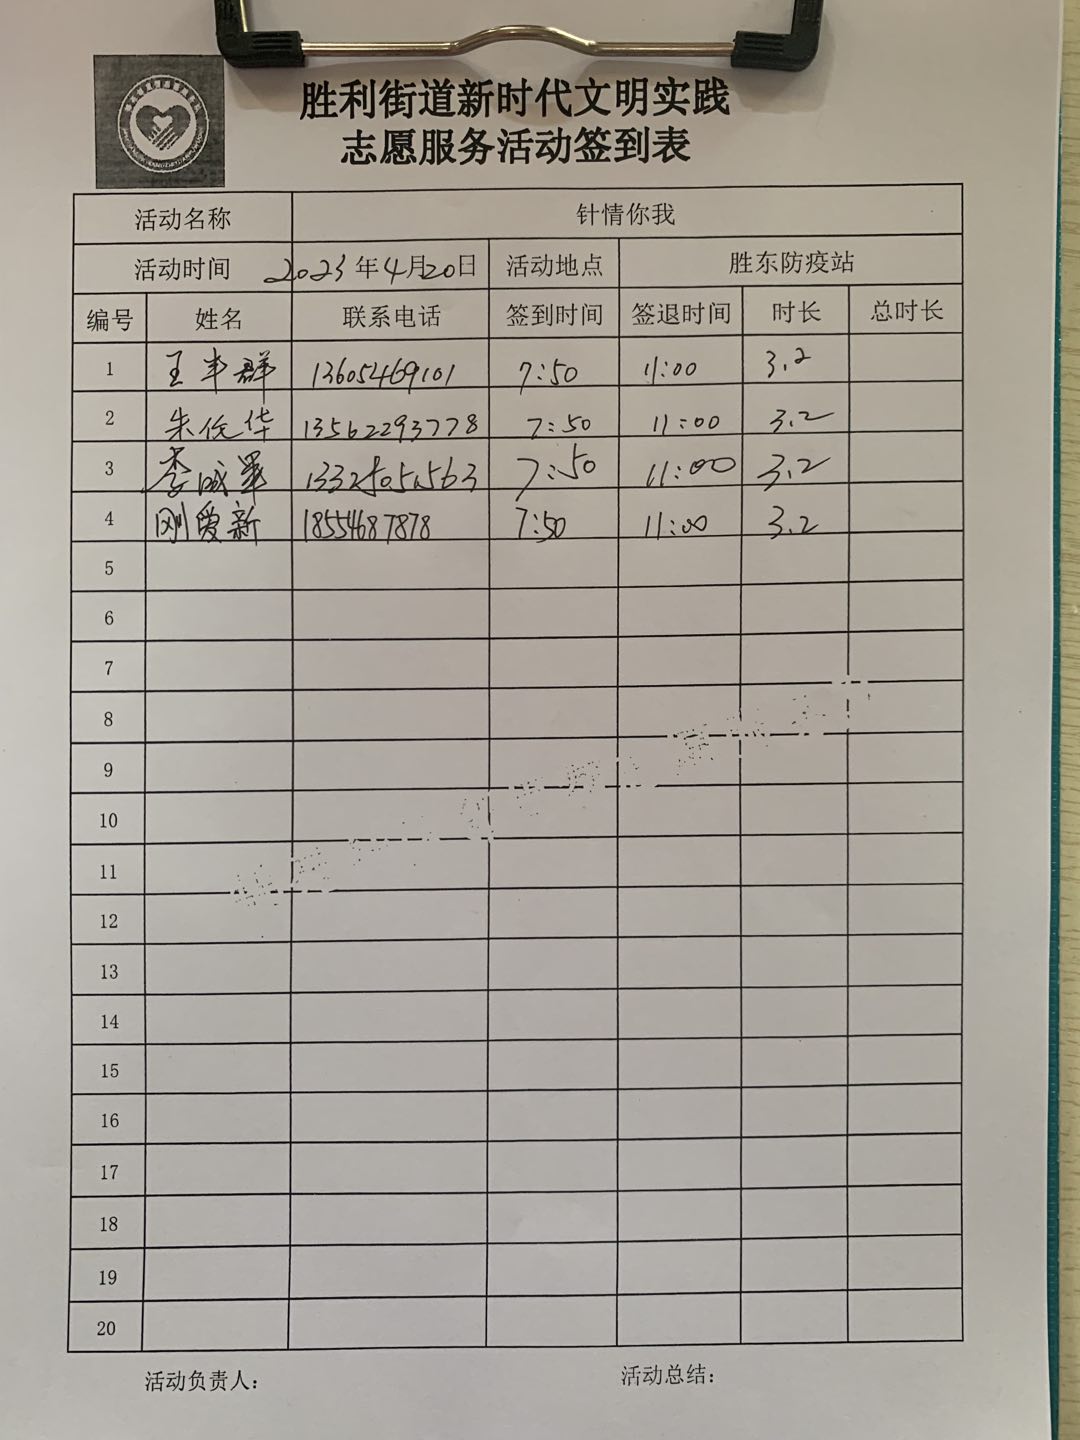 胜利街道新时代文明实践
志愿服务活动签到表
活动名称 针情你我
活动时间 2023年4月20日 活动地点 胜东防疫站
编号 姓名 联系电话 签到时间 签退时间 时长 总时长
1 王丰群 13605469101 7:50 11:00 3.2
2 朱 华 13562293778 7:50 11:00 3.2
3 李成军 7:50 11:00 3.2
4 刚爱新 18554687878 7:50 11:00 3.2
5
6
7
8
9
10
11
12
13
14
15
16
17
18
19
20
活动负责人: 活动总结: